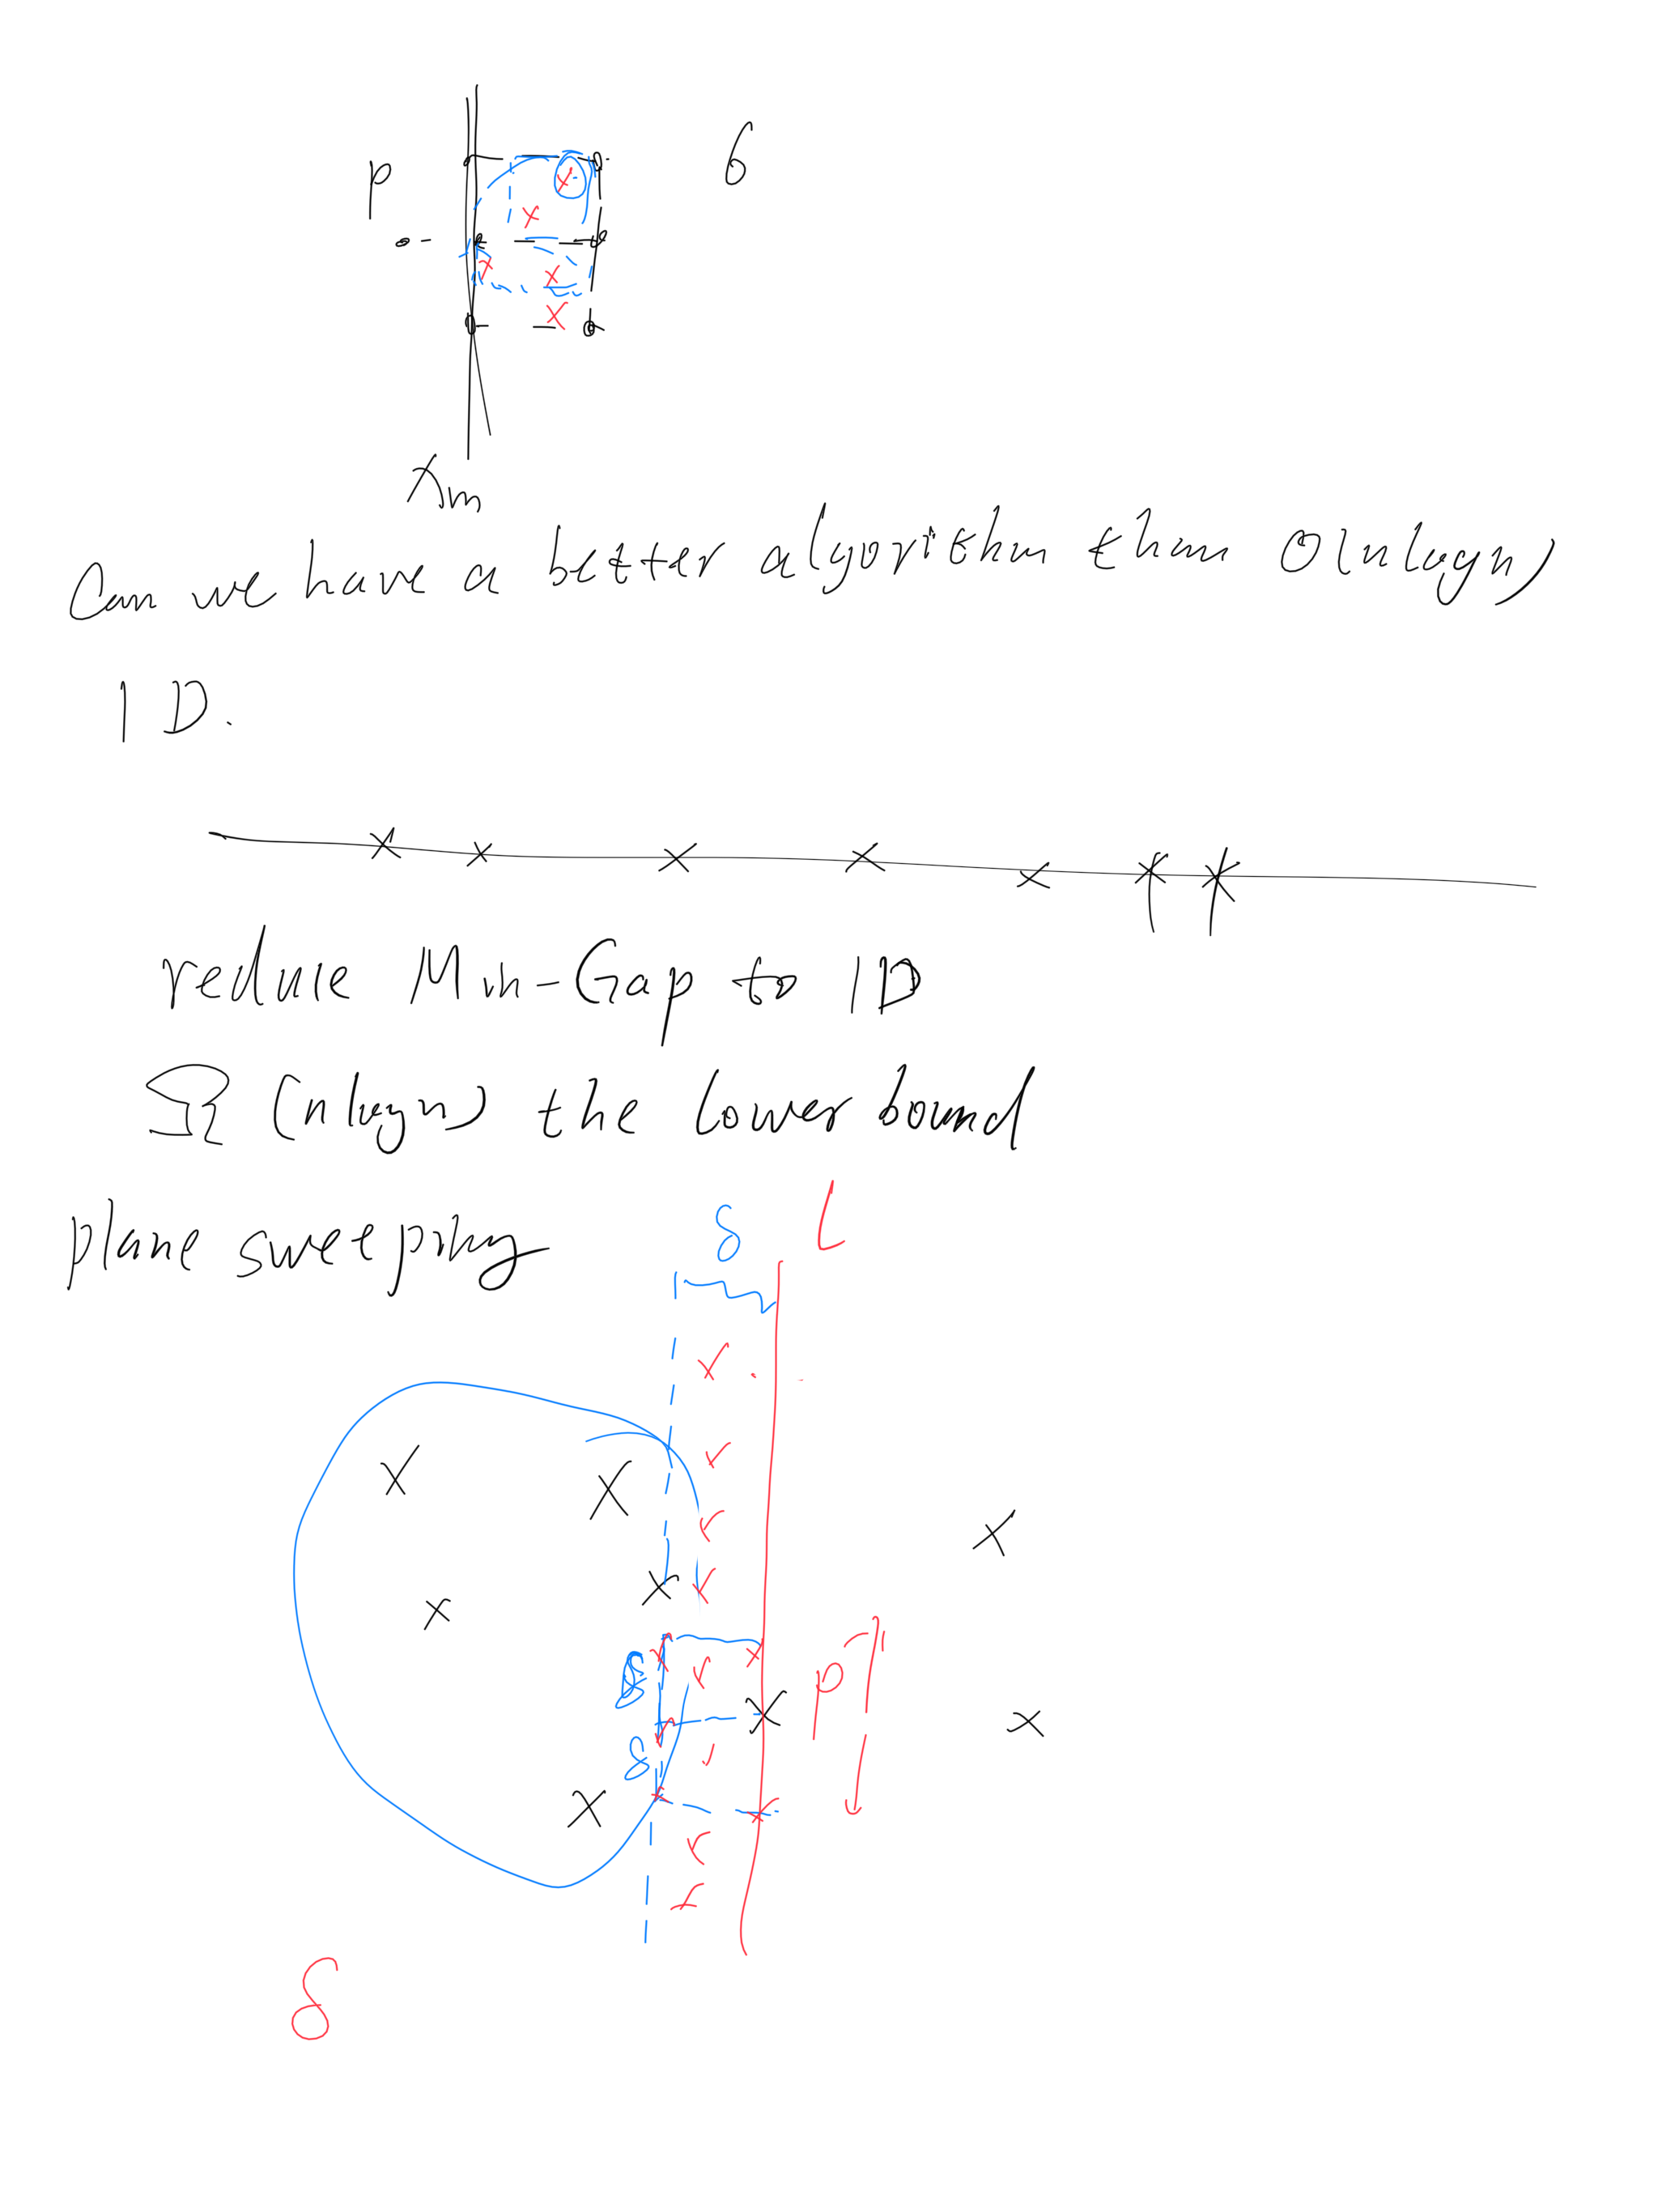 p
6
Xm
Can we have a better algorithm than O(nlogn)
1D.
reduce Min-Gap to 1D
Ω(nlogn) the lower bound
plane sweeping
δ L
δ
p
δ
δ